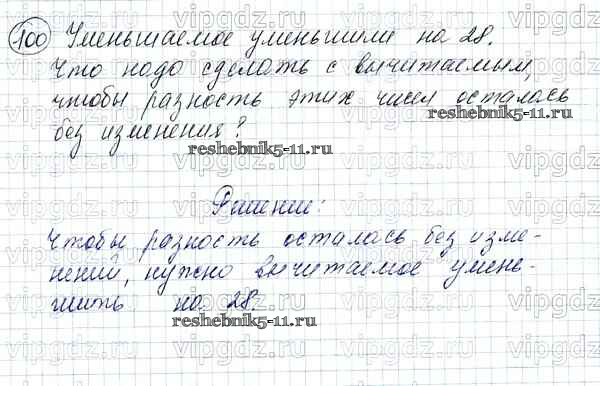 100 Уменьшаемое уменьшили на 28.
Что надо сделать с вычитаемым,
чтобы разность этих чисел осталась
reshebnik5-11.ru
без изменения?
reshebnik5-11.ru
Решение:
Чтобы разность осталась без изме-
нений, нужно вычитаемое умень-
шить на 28.
reshebnik5-11.ru